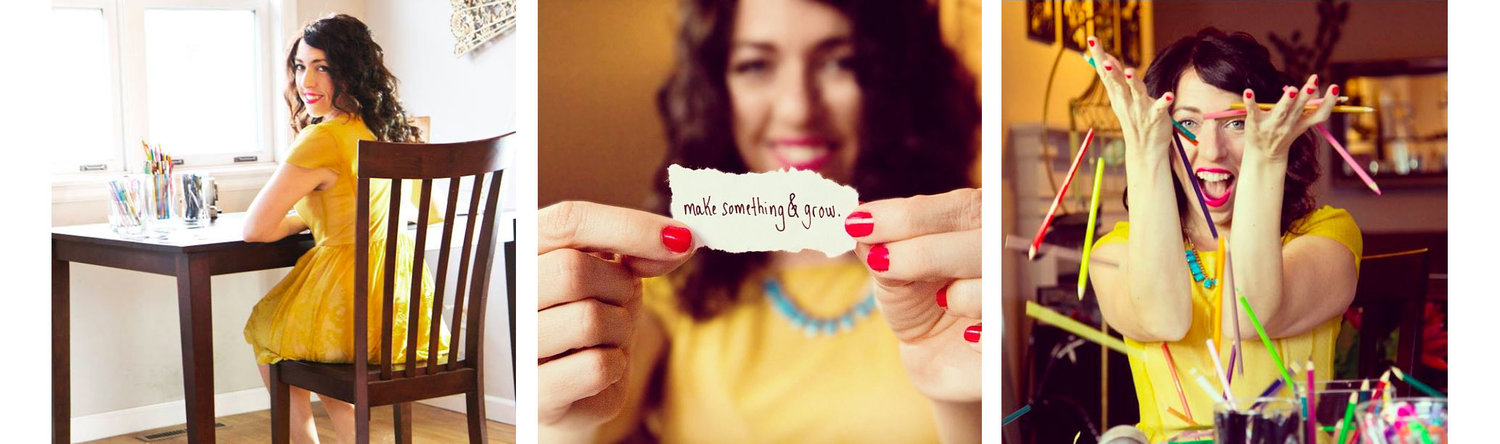 make something & grow.